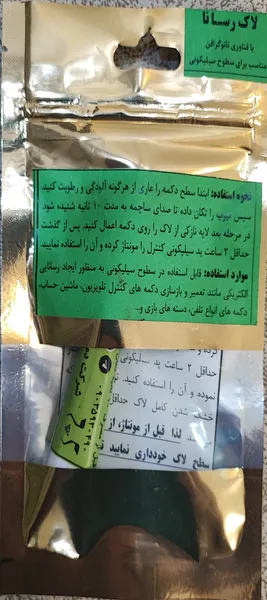 لاک رسانا
با فناوری نانوگرافن
مناسب برای سطوح سیلیکونی
نحوه استفاده: ابتدا سطح دکمه را عاری از هرگونه آلودگی و رطوبت کنید.
سپس تیوب را تکان داده تا صدای ساچمه به مدت ۱۰ ثانیه شنیده شود.
در مرحله بعد لایه نازکی از لاک را روی دکمه اعمال کنید. پس از گذشت
حداقل ۲ ساعت پد سیلیکونی کنترل را مونتاژ کرده و آن را استفاده نمایید.
موارد استفاده: قابل استفاده در سطوح سیلیکونی به منظور ایجاد رسانایی
الکتریکی مانند تعمیر و بازسازی دکمه های کنترل تلویزیون، ماشین حساب،
دکمه های انواع تلفن، دسته های بازی و..
کرده و
حداقل ۲ ساعت پد سیلیکونی
نموده و آن را استفاده کنید.
خشک شدن کامل لاک حداقل
لذا قبل از مونتاژ، از
سطح لاک خودداری نمایید